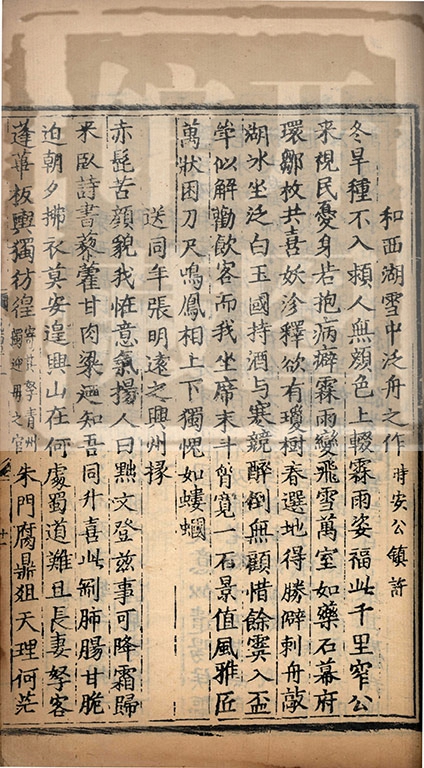 和西湖雪中泛舟之作時安公鎮許
冬旱種不入頰人無顏色上輟霖雨姿福此千里窄公
来視民憂身若抱病癖霖雨變飛雪萬室如藥石幕府
環鄒枚共喜妖沴釋欲有瓊樹春選地得勝僻刺舟敲
湖冰坐泛白玉國持酒与寒競醉倒無顧惜餘霙入盃
斝似解勸飲客而我坐席末斗筲寬一石景值風雅匠
萬狀困刀尺鳴鳳相上下獨愧如螻蟈
送同年張明遠之興州掾
赤髭苦顏貌我恠意氣揚人曰㸃文登兹事可降霜歸
来卧詩書藜藿甘肉粱廼知吾同升喜此剜肺腸甘脆
迫朝夕拂衣莫安遑興山在何處蜀道難且長妻孥客
蓬蓽板輿獨彷徨寄孥青州獨迎母之官朱門腐鼎俎天理何茫